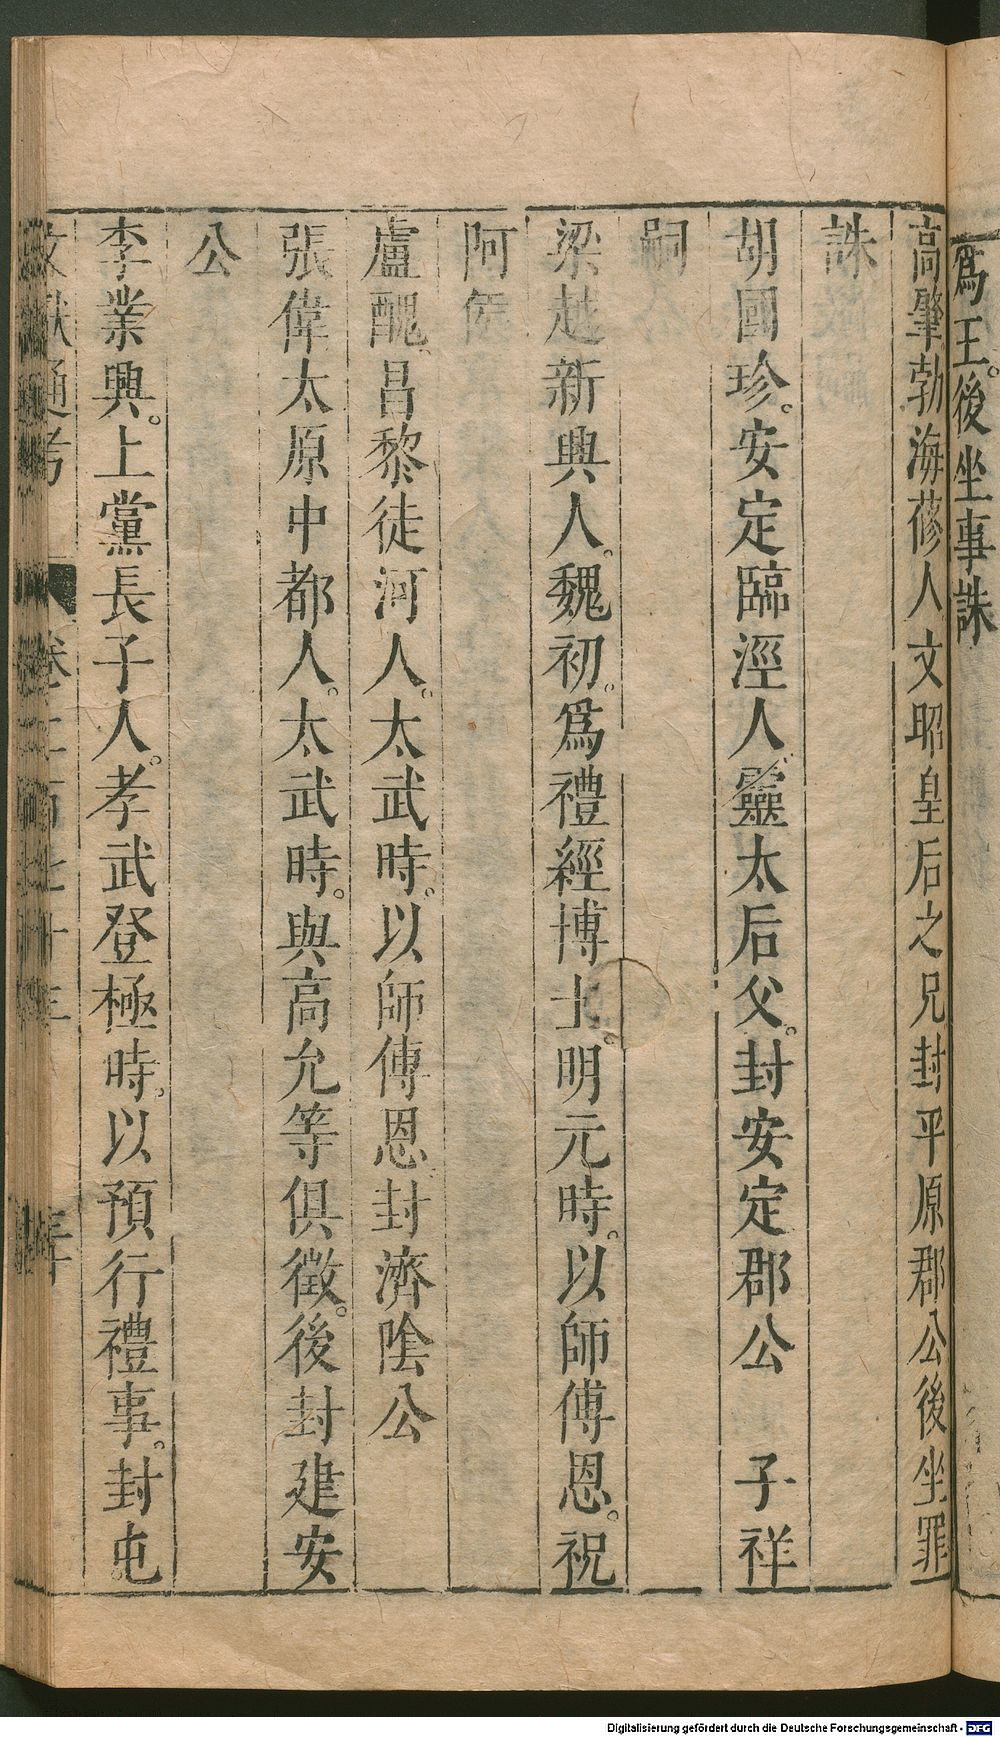 爲王。後坐事誅
高肇勃海蓨人文昭皇后之兄封平原郡公後坐罪
誅
胡國珍。安定臨涇人靈太后父。封安定郡公　子祥
嗣
梁越新興人。魏初。爲禮經博士。明元時。以師傅恩。祝
阿侯
盧醜。昌黎徒河人。太武時。以師傅恩封濟陰公
張偉太原中都人。太武時。與高允等俱徵。後封建安
公
李業興。上黨長子人。孝武登極時。以預行禮事。封屯
文獻通考 卷二百七十三
Digitalisierung gefördert durch die Deutsche Forschungsgemeinschaft - DFG